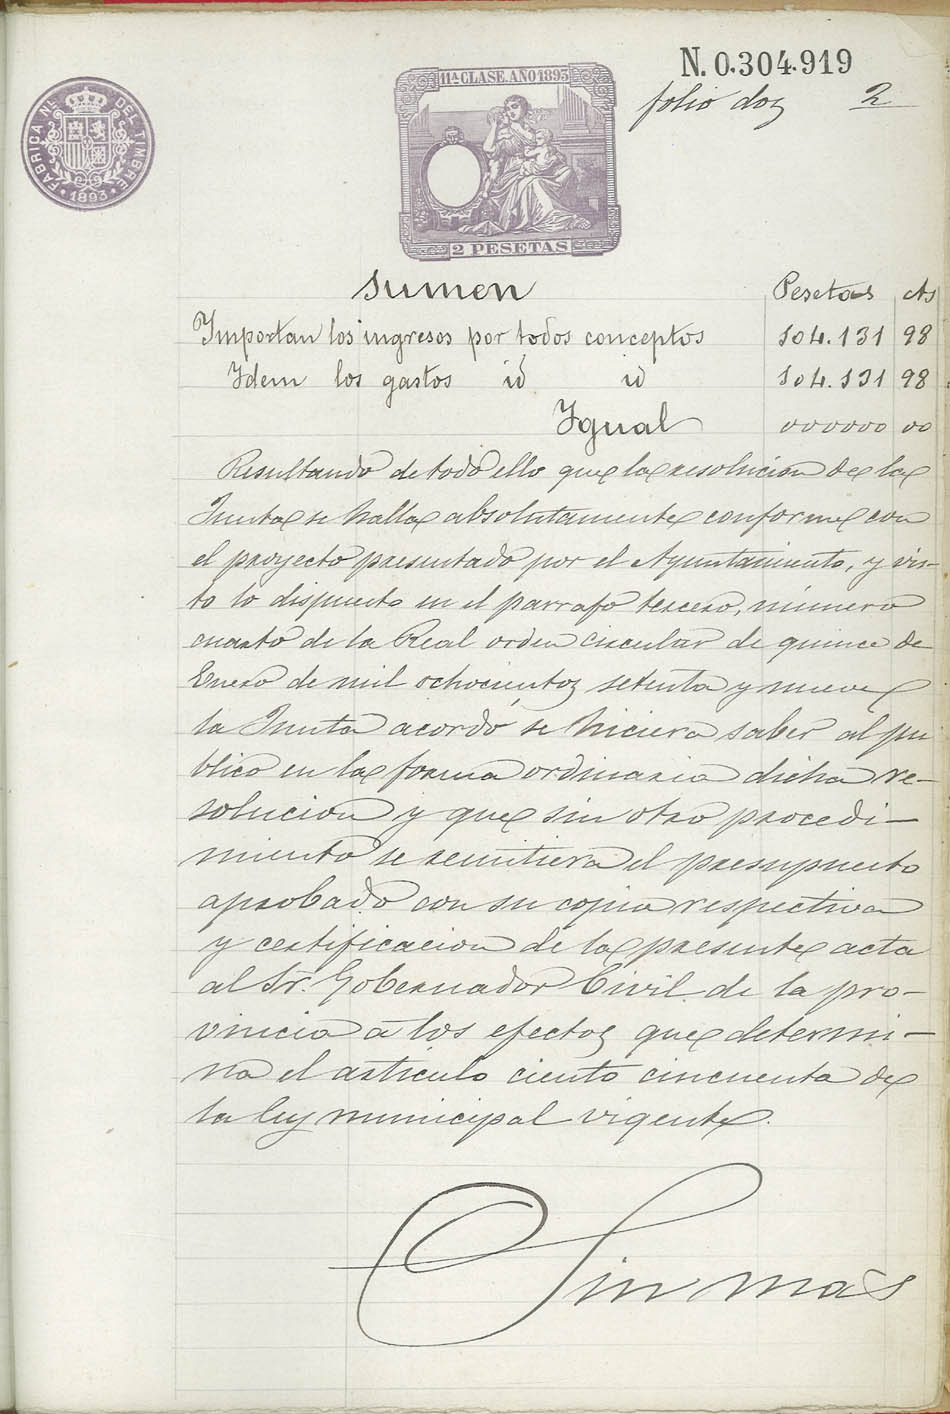 N. 0.304.919
folio doz 2
FABRICA NL. DEL TIMBRE
1893
11ª CLASE. AÑO 1893
2 PESETAS
sumen Pesetas cts
Importan los ingresos por todos conceptos 104.131 98
Idem los gastos id id 104.131 98
Igual 000000 00
Resultando de todo ello que la resolucion de la
Junta se halla absolutamente conforme con
el proyecto presentado por el Ayuntamiento, y vis-
to lo dispuesto en el parrafo tercero, número
cuarto de la Real orden circular de quince de
Enero de mil ochocientoz setenta y nueve
la Junta acordó se hiciera saber al pu
blico en la forma ordinaria dicha re-
solucion y que sin otro procedi-
miento se remitiera el presupuesto
aprobado con su copia respectiva
y certificacion de la presente acta
al Sr. Gobernador Civil de la pro-
vincia a los efectoz que determi-
na el articulo ciento cincuenta de
la ley municipal vigente.
Sin mas